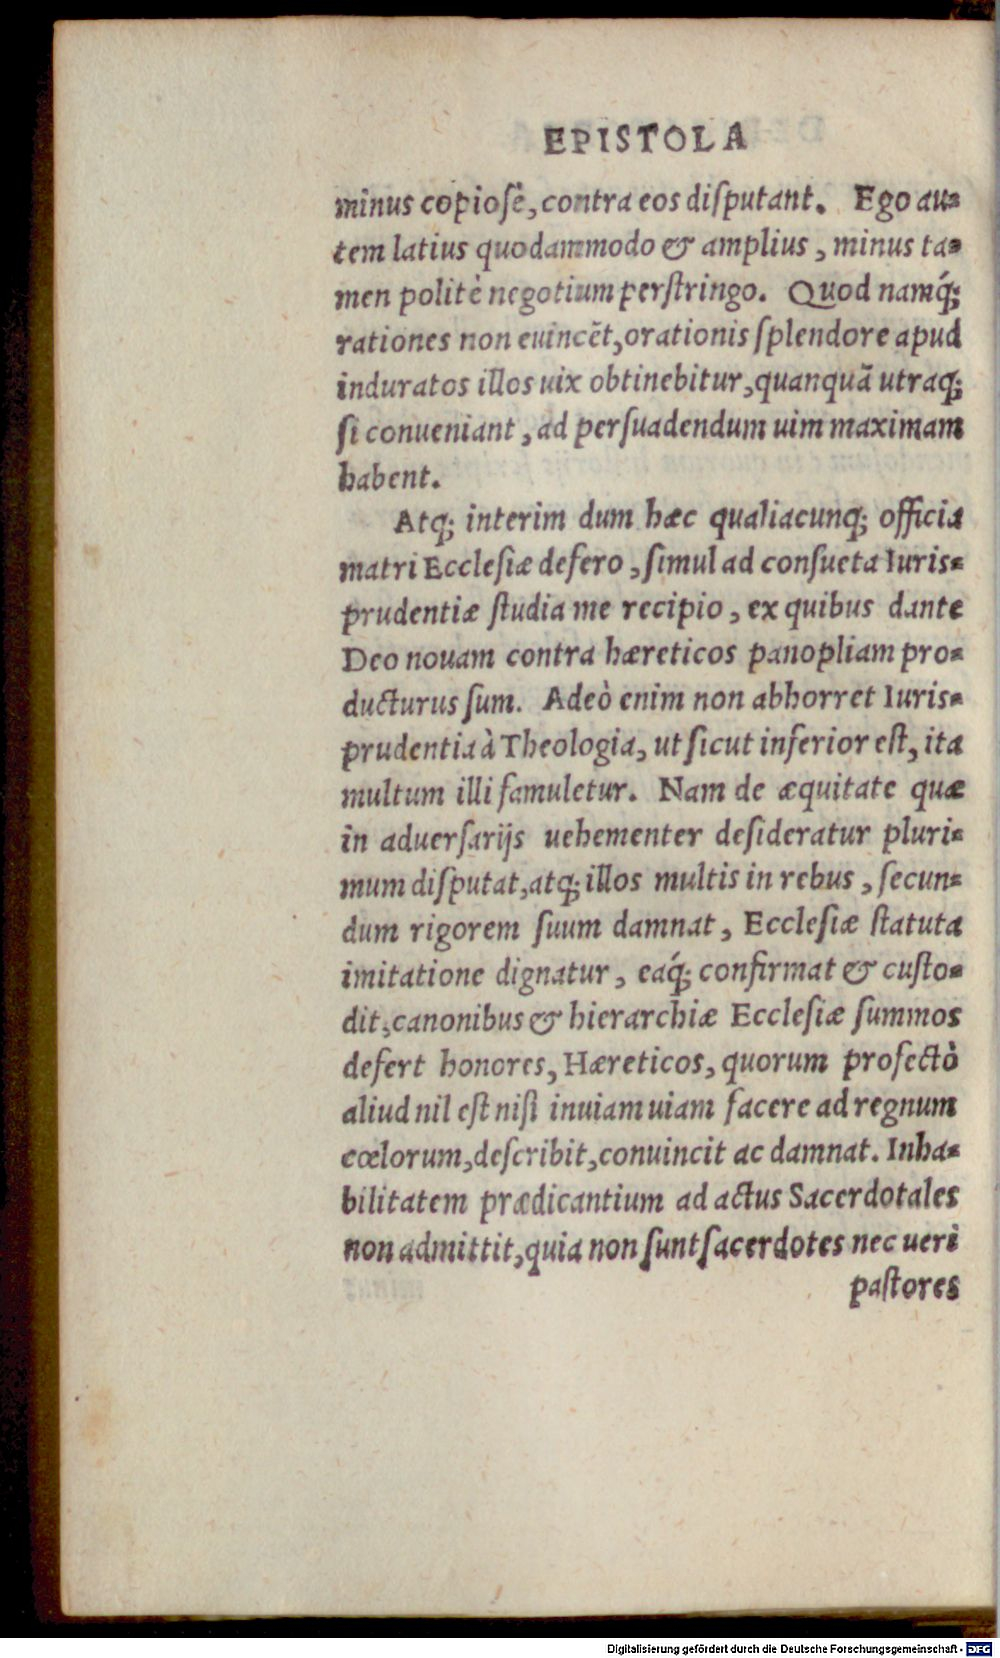 EPISTOLA
minus copiosè, contra eos disputant. Ego au-
tem latius quodammodo & amplius, minus ta-
men politè negotium perstringo. Quod namq́;
rationes non euincẽt, orationis splendore apud
induratos illos uix obtinebitur, quanquã utraq;
si conueniant, ad persuadendum uim maximam
habent.
Atq; interim dum hæc qualiacunq; officia
matri Ecclesiæ defero, simul ad consueta Iuris-
prudentiæ studia me recipio, ex quibus dante
Deo nouam contra hæreticos panopliam pro-
ducturus sum. Adeò enim non abhorret Iuris-
prudentia à Theologia, ut sicut inferior est, ita
multum illi famuletur. Nam de æquitate quæ
in aduersarijs uehementer desideratur pluri-
mum disputat, atq; illos multis in rebus, secun-
dum rigorem suum damnat, Ecclesiæ statuta
imitatione dignatur, eaq́; confirmat & custo-
dit, canonibus & hierarchiæ Ecclesiæ summos
defert honores, Hæreticos, quorum profectò
aliud nil est nisi inuiam uiam facere ad regnum
cœlorum, describit, conuincit ac damnat. Inha-
bilitatem prædicantium ad actus Sacerdotales
non admittit, quia non sunt sacerdotes nec ueri
pastores
Digitalisierung gefördert durch die Deutsche Forschungsgemeinschaft - DFG